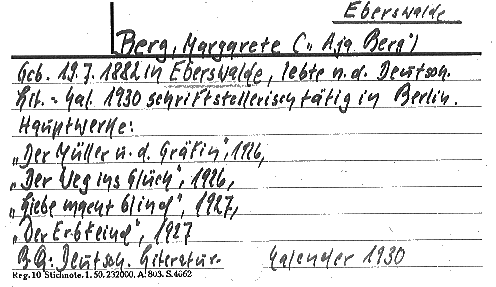 Eberswalde
Berg, Margarete („Aja Berg")
Geb. 19.7.1882 in Eberswalde, lebte n.d. Deutsch.
Lit.-Kal. 1930 schriftstellerisch tätig in Berlin.
Hauptwerke:
„Der Müller u.d. Gräfin", 1926,
„Der Weg ins Glück", 1926,
„Liebe macht blind", 1927,
„Der Erbfeind", 1927
B.Q.: Deutsch. Literatur- Kalender 1930
Reg. 10 Stichnote. 1. 50. 232000. A. 803. S. 4662